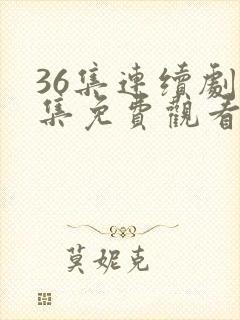 36集連續劇
集免費觀看
莫妮克